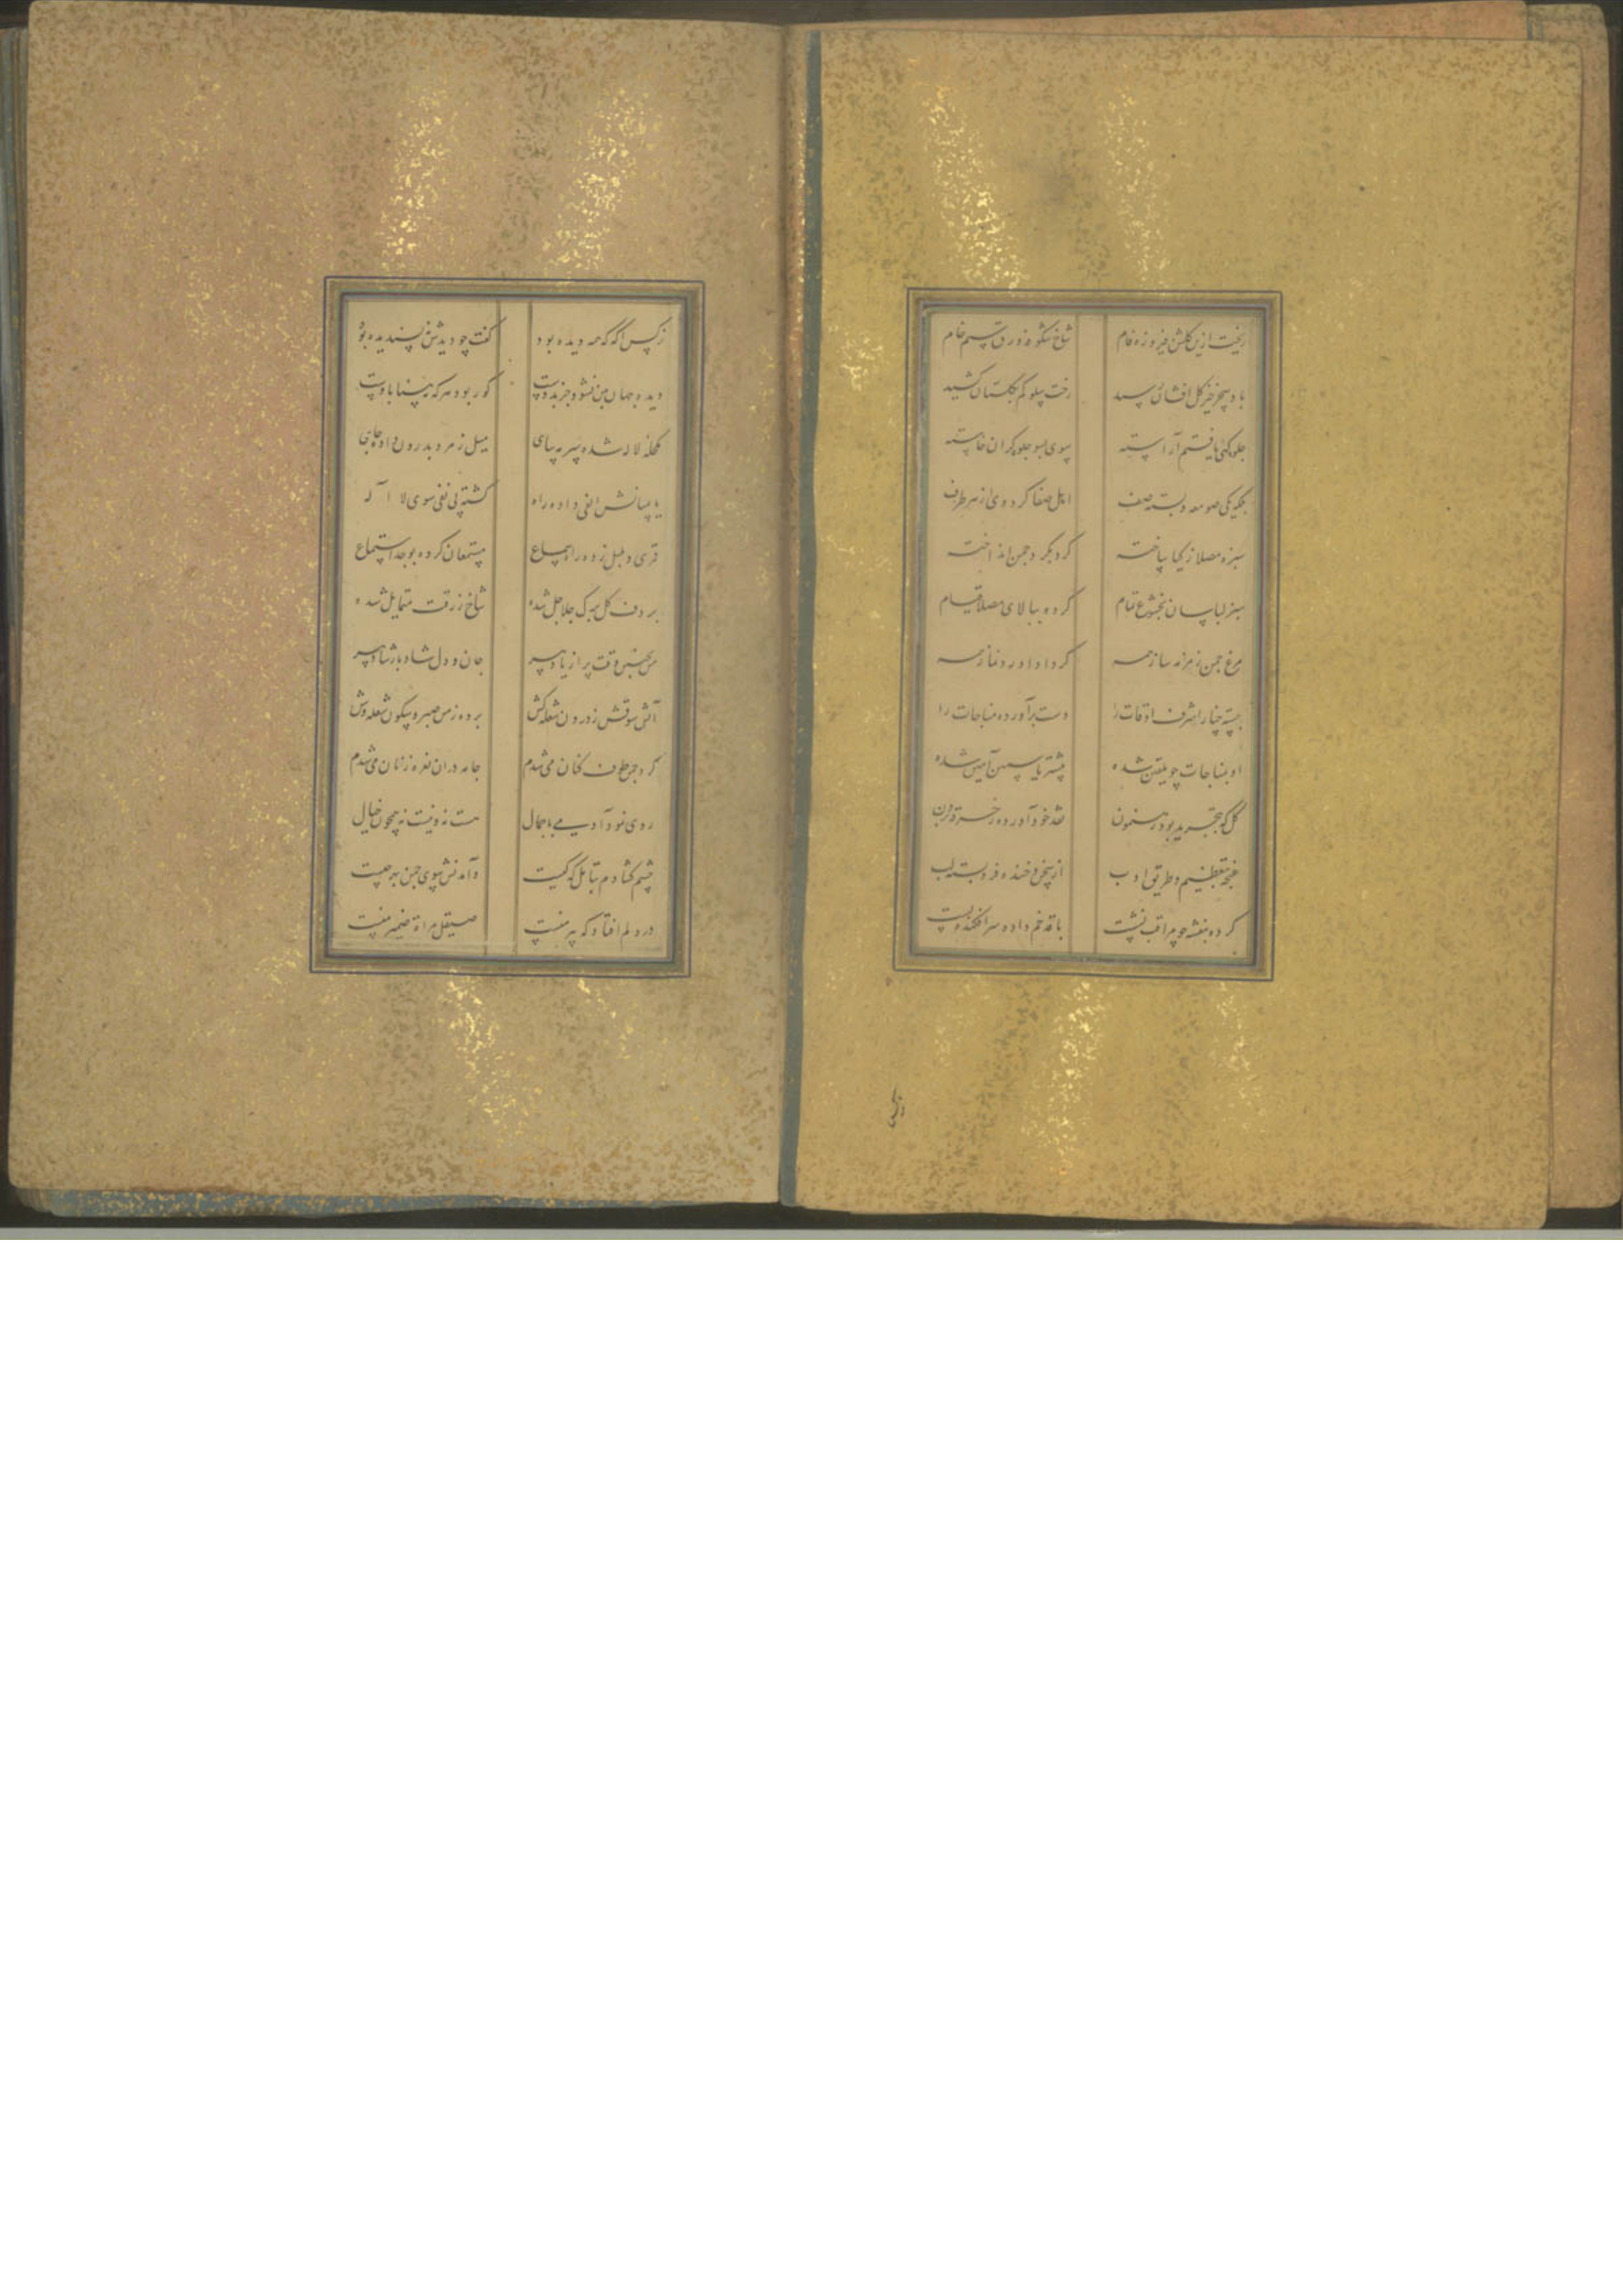 ریخت ازین گلشن فیروزه فام شاخ شکوفه ورق سیم خام
باد سحر خیز گل افشان رسید رخت سلوکم بگلستان کشید
جلوه گهی یافتم آراسته سوی بسو جلوه گران خاسته
بلکه یکی صومعه و بسته صف اهل صفا گرد وی از هر طرف
سبزه مصلا ز گیا ساخته گرد بگرد چمن انداخته
سبز لباسان بخشوع تمام کرده ببالای مصلا قیام
مرغ چمن زمزمه ساز همه کرد ادا ورد نماز همه
جسته چنار اشرف اوقات را دست برآورده مناجات را
او بمناجات چو شده یاسمن آمین شده
گل که بتجرید بود رهنمون نقد خود آورده ز خرقه برون
غنچه بتعظیم و طریق ادب از سخن و خنده فرو بسته لب
کرده بنفشه چو مراقب نشست با قد خم داده سر افکنده پست
نرگس اگر که همه دیده بود گفت چو دیدش پسندیده بود
دیده جهان بین نشود جز بدوست کور بود هر که نه بینا باوست
مکحله لاله شده سرمه سای میل زمرد بدرون داده جای
یا بمیانش الفی داده راه گشته پی نفی سوی لا اله
قمری و بلبل زده راه سماع مستمعان کرده بوجد استماع
بر دف گل برگ جلاجل شده شاخ ز رقت متمایل شده
من بچنین وقت پر از یاد پیر جان و دل شاد بارشاد پیر
آتش شوقش ز درون شعله کش برده ز من صبر و سکون شعله وش
گرد چمن طوف کنان می شدم جامه دران نعره زنان می شدم
روی نمود آدمیی با جمال هست نه و نیست نه همچون خیال
چشم گشادم بتامل که کیست وآمدنش سوی چمن بهر چیست
در دلم افتاد که پیر منست صیقل مرآة ضمیر منست